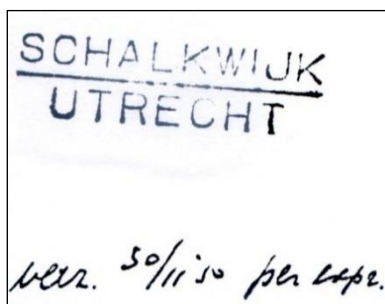 SCHALKWIJK
UTRECHT
verz. 30/11'50 per expr.